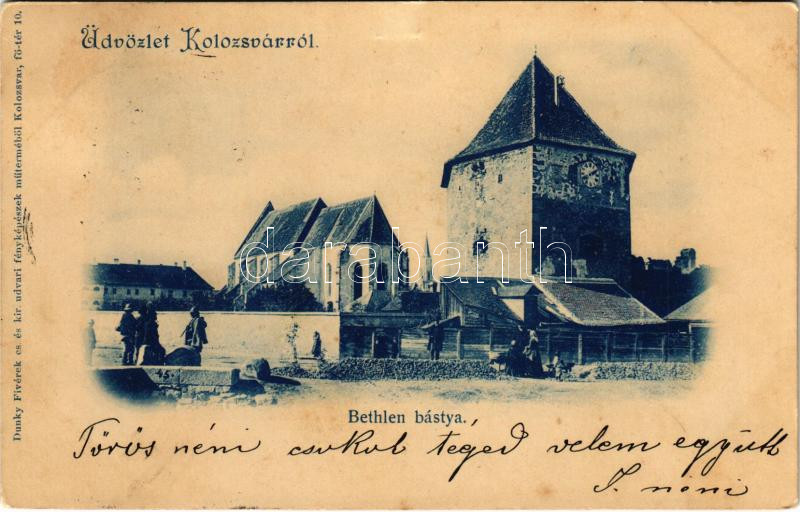 Üdvözlet Kolozsvárról.
Dunky Fivérek cs. és kir. udvari fényképészek műterméből Kolozsvar, fő-tér 10.
darabanth
45
Bethlen bástya.
Törös néni csokol téged velem együtt
I. néni